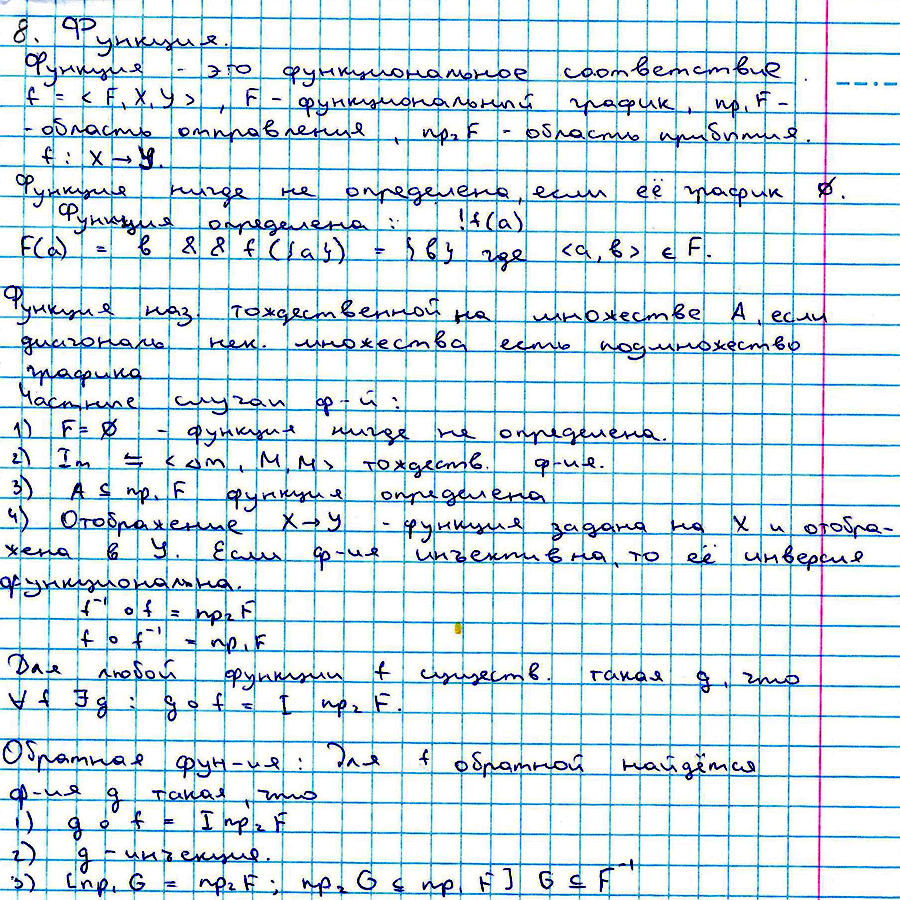 8. Функция.
Функция - это функциональное соответствие.
f = < F, X, Y >, F - функциональный график, пр₁F -
- область отправления, пр₂F - область прибытия.
f : X → Y.
Функция нигде не определена, если её график ∅.
Функция определена : !f(a)
F(a) = b & & f({a}) = {b} где <a, b> ∈ F.
Функция наз. тождественной на множестве A, если
диагональ нек. множества есть подмножество
графика
Частные случаи ф-й :
1) F = ∅ - функция нигде не определена.
2) Im ⇆ < Δm, M, M > тождеств. ф-ия.
3) A ⊆ пр₁ F функция определена
4) Отображение X → Y - функция задана на X и отобра-
жена в Y. Если ф-ия инъективна, то её инверсия
функциональна.
f⁻¹ ∘ f = пр₂ F
f ∘ f⁻¹ = пр₁ F
Для любой функции f существ. такая g, что
∀ f ∃ g : g ∘ f = I пр₂ F.
Обратная фун-ия : Для f обратной найдётся
ф-ия g такая, что
1) g ∘ f = I пр₂ F
2) g - инъекция.
3) [пр₁ G = пр₂ F ; пр₂ G ⊆ пр₁ F] G ⊆ F⁻¹